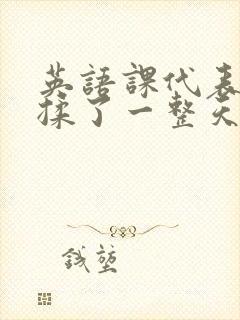 英語課代表
揉了一整天
錢堃